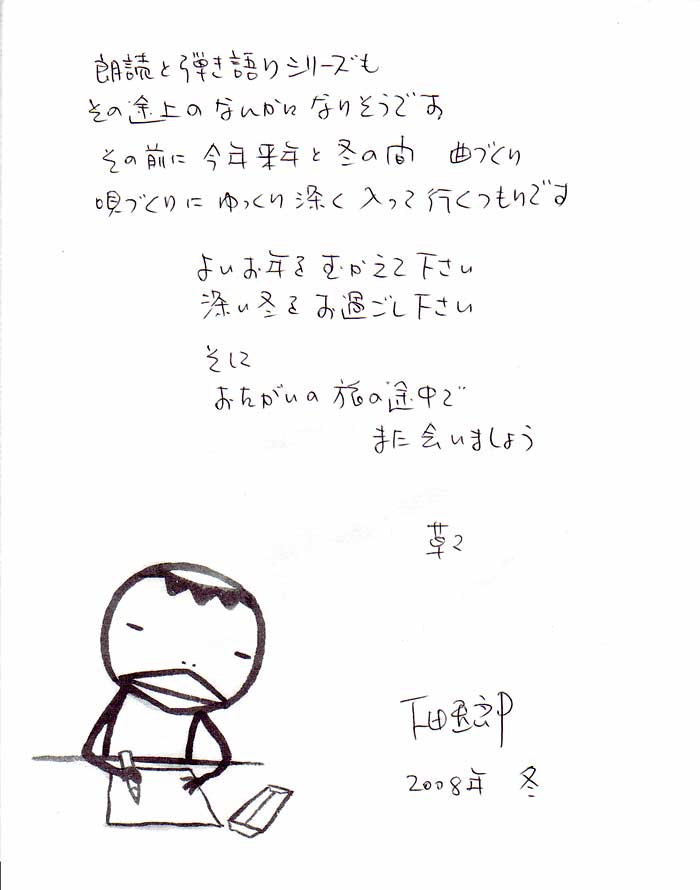 朗読と弾き語りシリーズも
その途上のなんかに なりそうです
その前に 今年来年と 冬の間 曲づくり
唄づくりに ゆっくり 深く 入って 行くつもりです
よいお年を むかえて下さい
深い冬を お過ごし下さい
そして
おたがいの 旅の途中で
また 会いましょう
草々
下田逸郎
2008年 冬